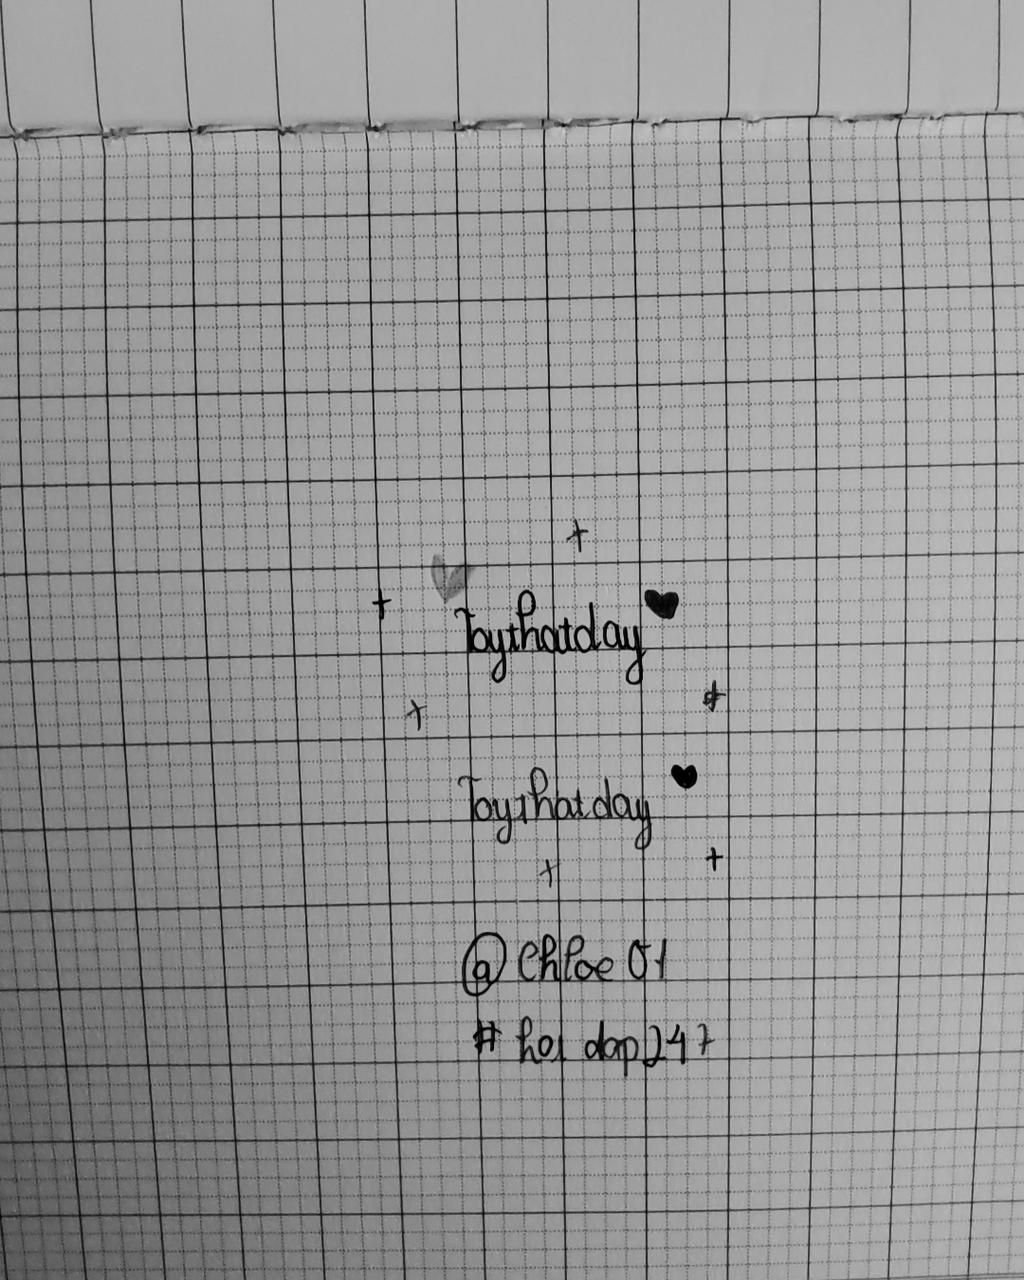 Toythatday
Toythatday
@ Chloe 01
# hoi dap247